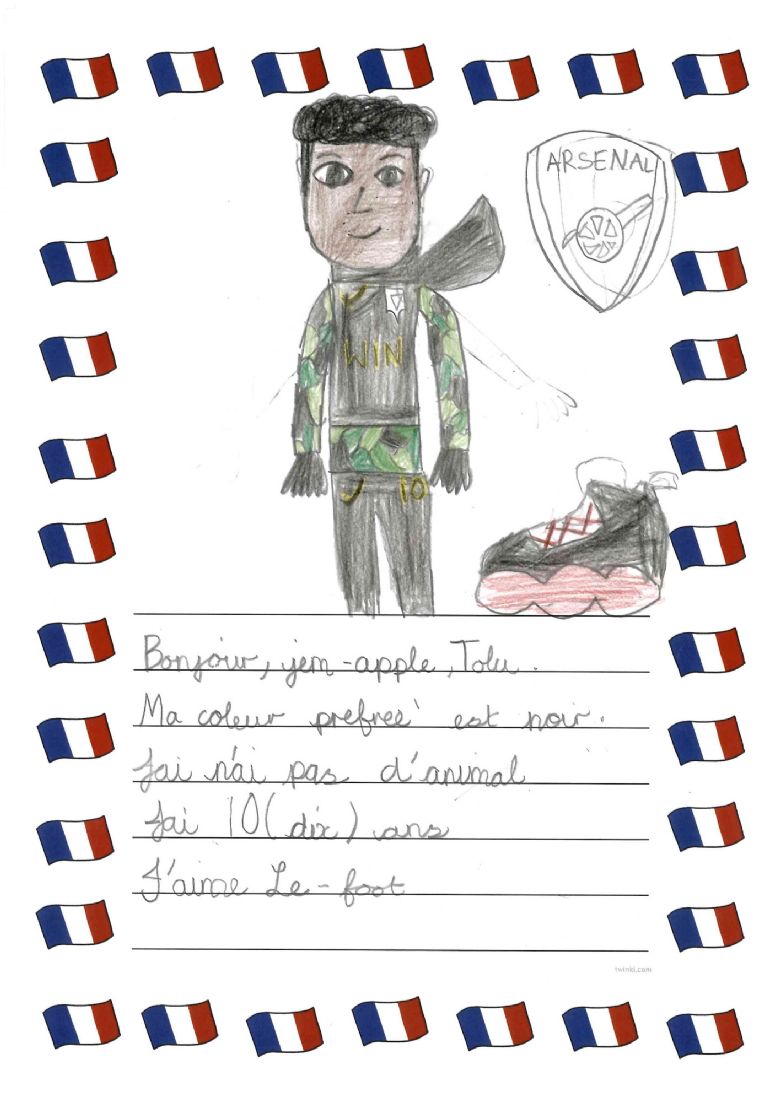 ARSENAL
WIN
10
Bonjour, jem-apple, Tolu.
Ma coleur prefreé est noir.
Jai n'ai pas d'animal
Jai 10 (dix) ans
J'aime Le-foot
twinkl.com